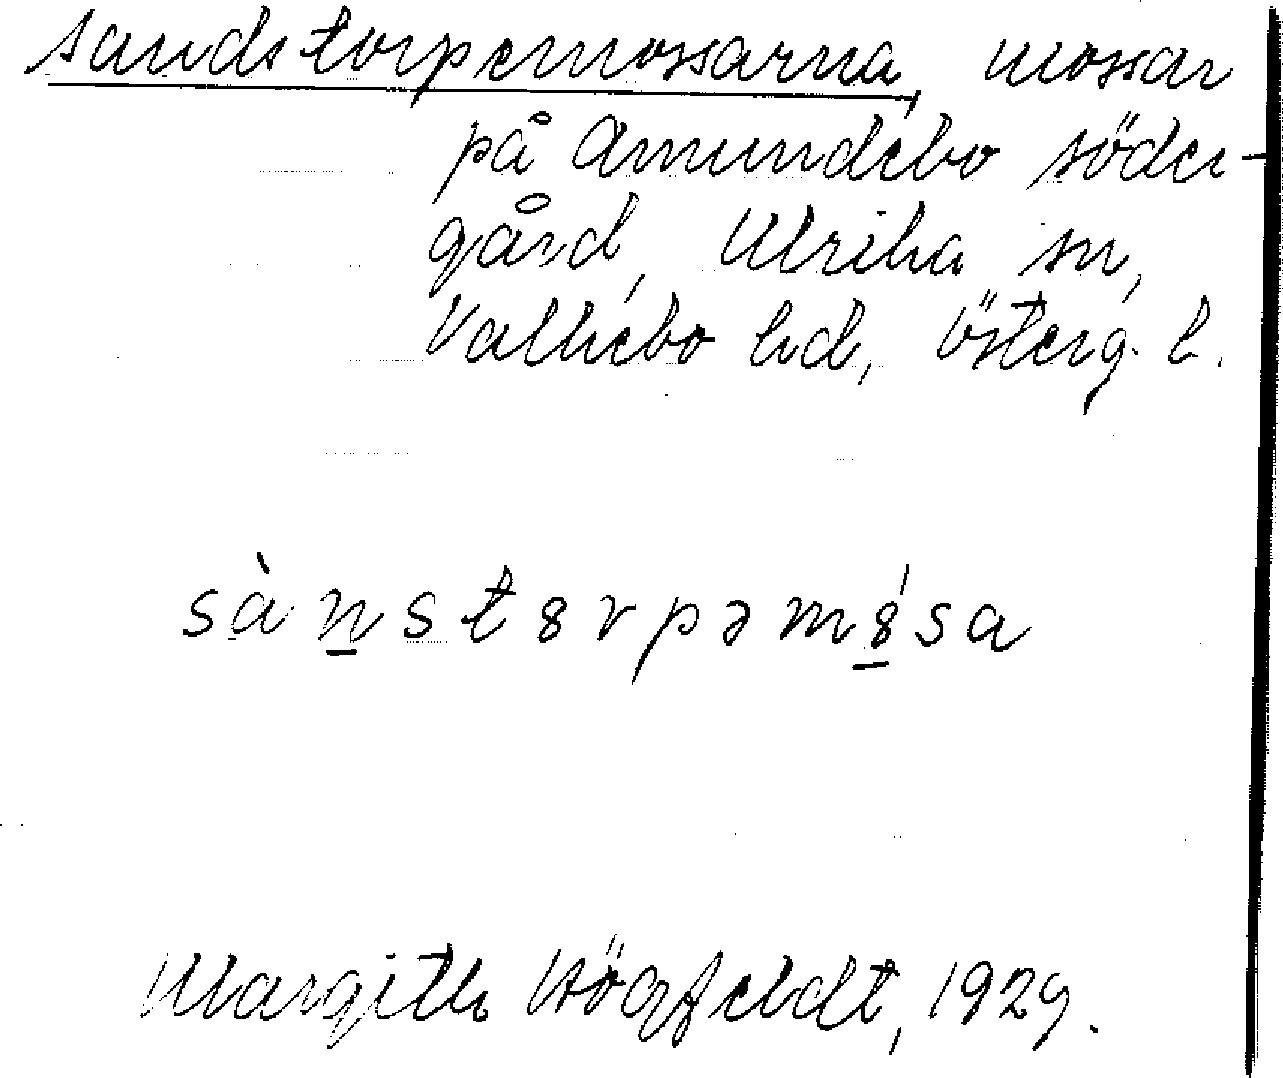 Sandstorpemossarna, mossar
på Amundebo söder-
gård, Ulrika sn,
Valkebo hd, Österg. l.
sànstȣrpəmȣ́sa
Margith Högfeldt, 1929.